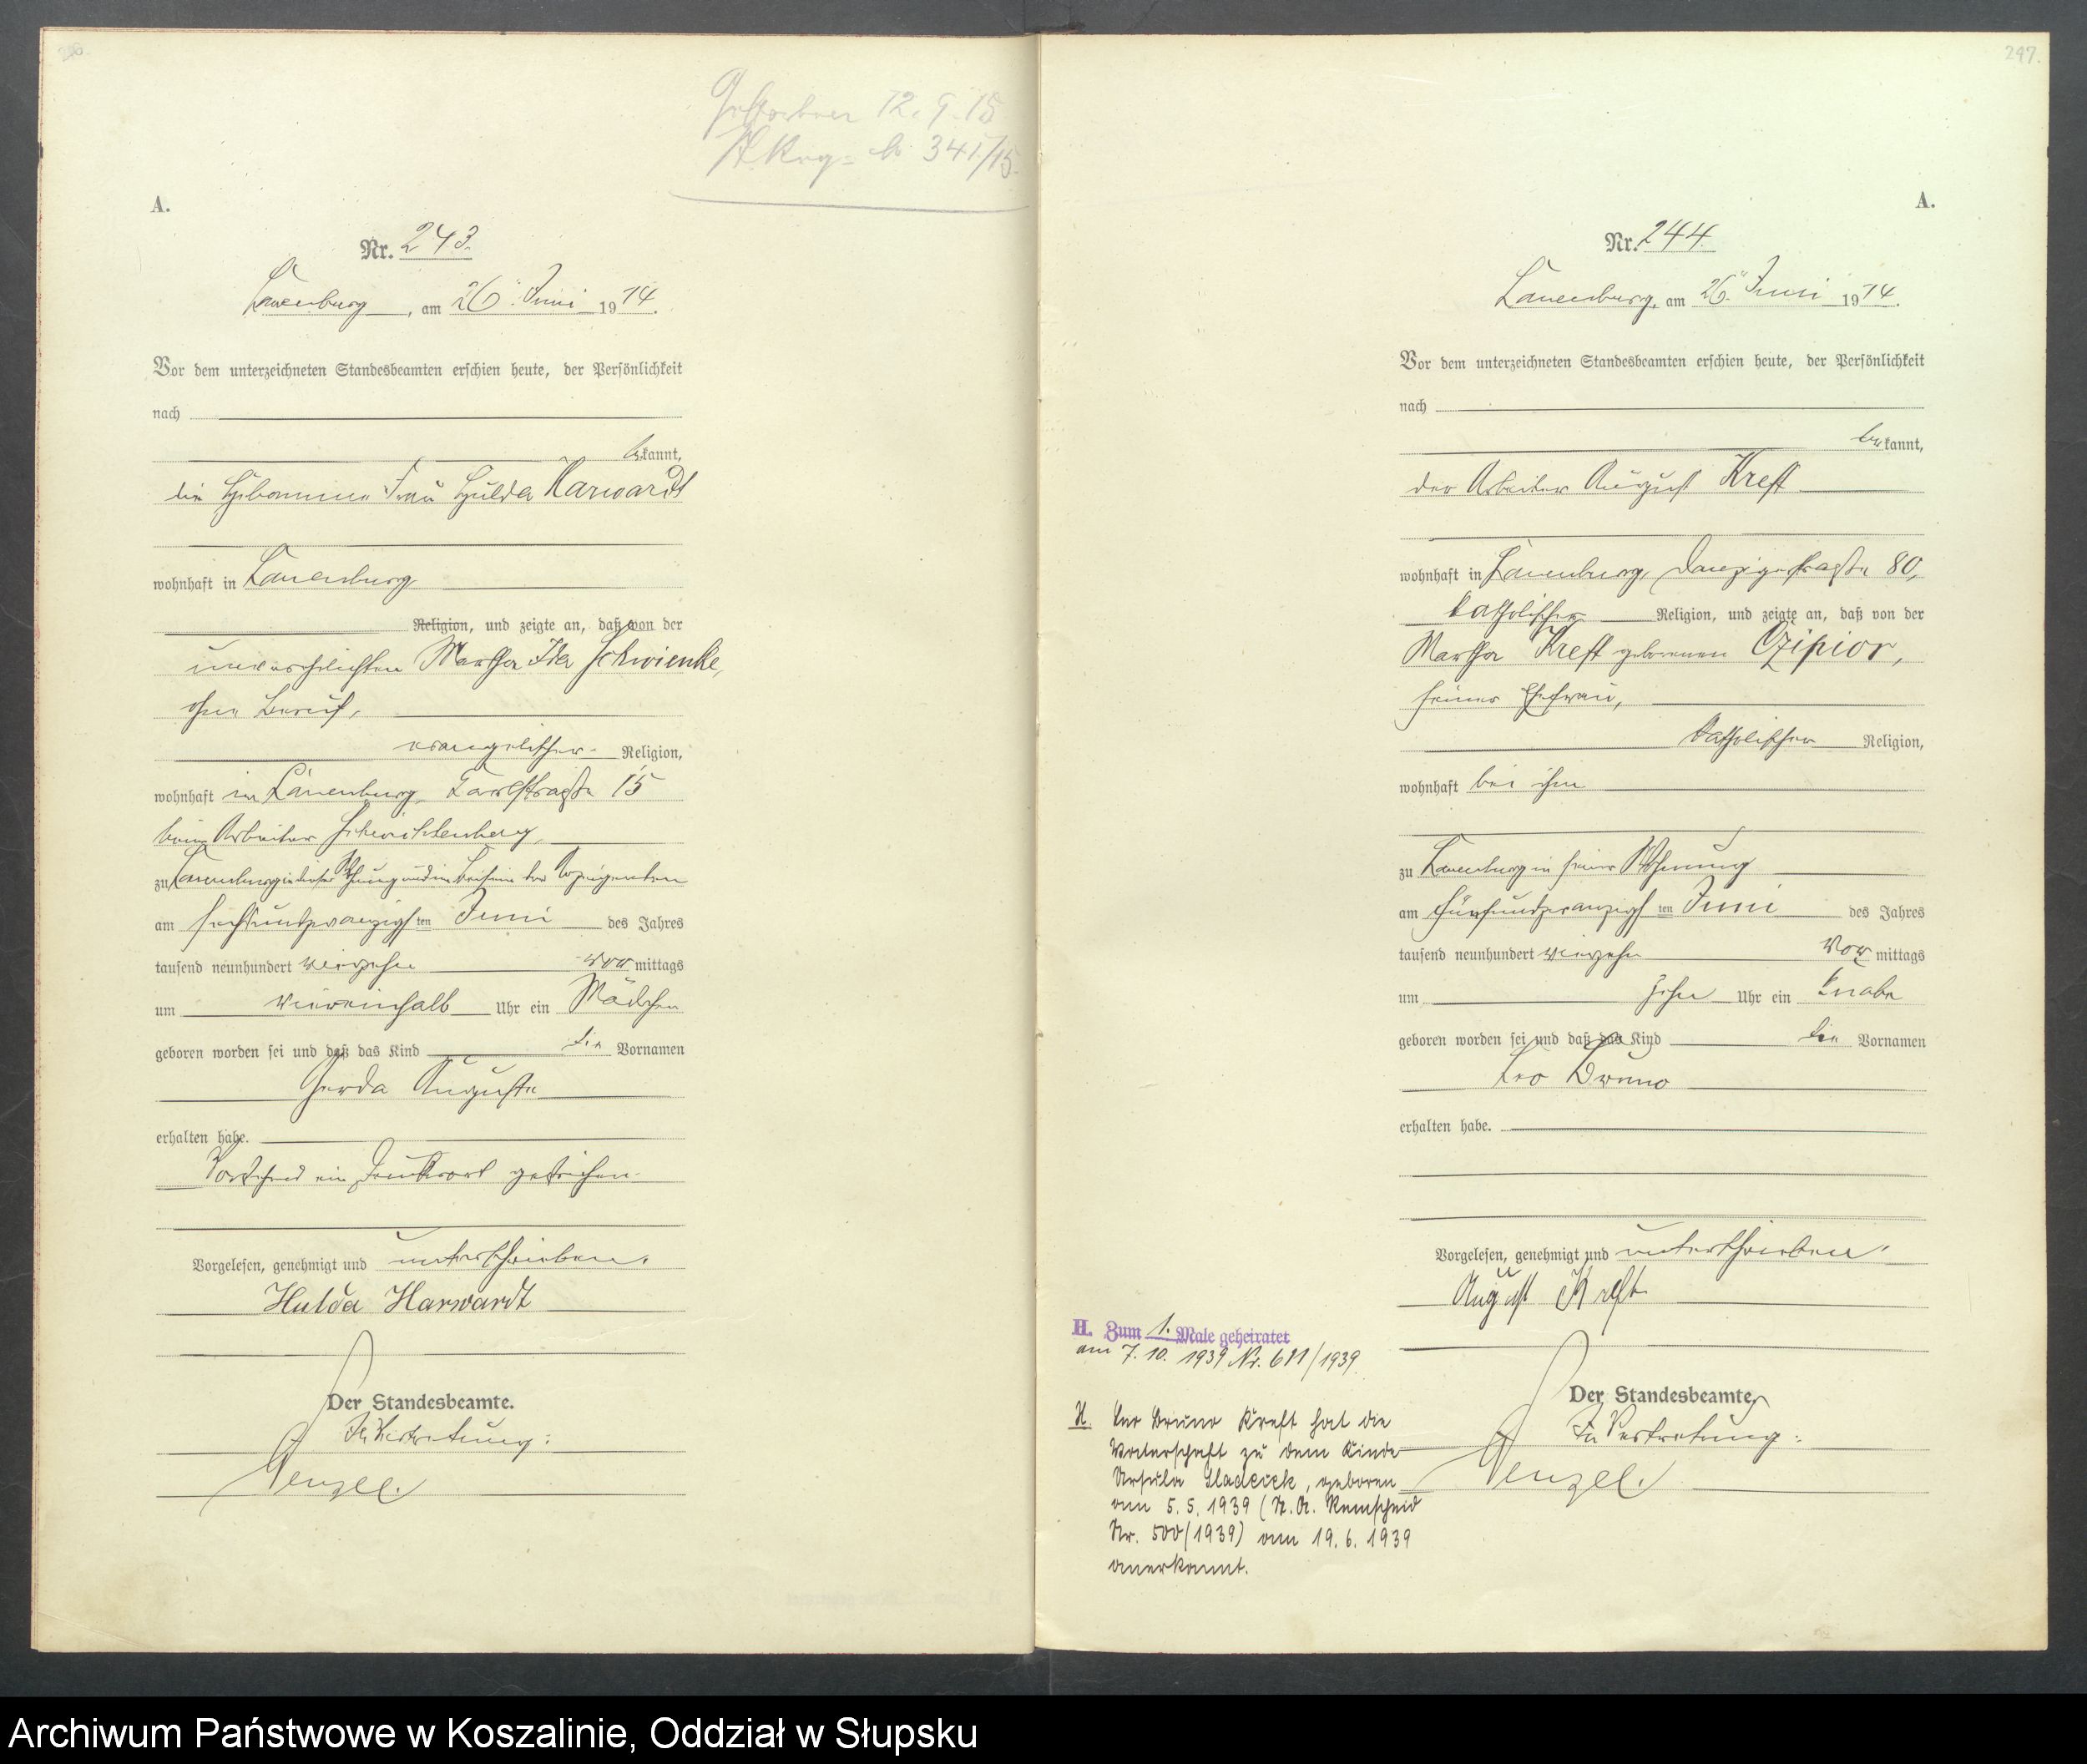 Gestorben 12.9.15
341/15.
A.
Nr. 243.
Lauenburg, am 26. Juni 1914.
Vor dem unterzeichneten Standesbeamten erschien heute, der Persönlichkeit
nach
bekannt,
die Hebamme Frau Hulda Harwardt
wohnhaft in Lauenburg
Religion, und zeigte an, daß von der
unverehelichten Martha Ida Schwienke,
ohne Beruf,
evangelischer Religion,
wohnhaft in Lauenburg, Karlstraße 15
beim Arbeiter Schwichtenberg,
zu Lauenburg in dieser Wohnung und in Beisein der Anzeigenden
am sechsundzwanzigsten Juni des Jahres
tausend neunhundert vierzehn vormittags
um viereinhalb Uhr ein Mädchen
geboren worden sei und daß das Kind die Vornamen
Gerda Auguste
erhalten habe.
Vorstehend ein Druckwort gestrichen.
Vorgelesen, genehmigt und unterschrieben.
Hulda Harwardt
Der Standesbeamte.
In Vertretung:
Wenzel.
247.
A.
Nr. 244.
Lauenburg, am 26. Juni 1914.
Vor dem unterzeichneten Standesbeamten erschien heute, der Persönlichkeit
nach
bekannt,
der Arbeiter August Kreft
wohnhaft in Lauenburg, Danzigerstraße 80,
katholischer Religion, und zeigte an, daß von der
Martha Kreft geborenen Czipior,
seiner Ehefrau,
katholischer Religion,
wohnhaft bei ihm
zu Lauenburg in seiner Wohnung
am fünfundzwanzigsten Juni des Jahres
tausend neunhundert vierzehn vormittags
um zehn Uhr ein Knabe
geboren worden sei und daß das Kind die Vornamen
Leo Bruno
erhalten habe.
Vorgelesen, genehmigt und unterschrieben.
August Kreft
Der Standesbeamte.
In Vertretung:
Wenzel.
H. Zum 1. Male geheiratet
am 7.10.1939 Nr. 611/1939.
Leo Bruno Kreft hat die
Vaterschaft zu dem Kinde
Ursula Sladeick, geboren
am 5.5.1939 (St.A. Remscheid
Nr. 500/1939) am 19.6.1939
anerkannt.
Archiwum Państwowe w Koszalinie, Oddział w Słupsku